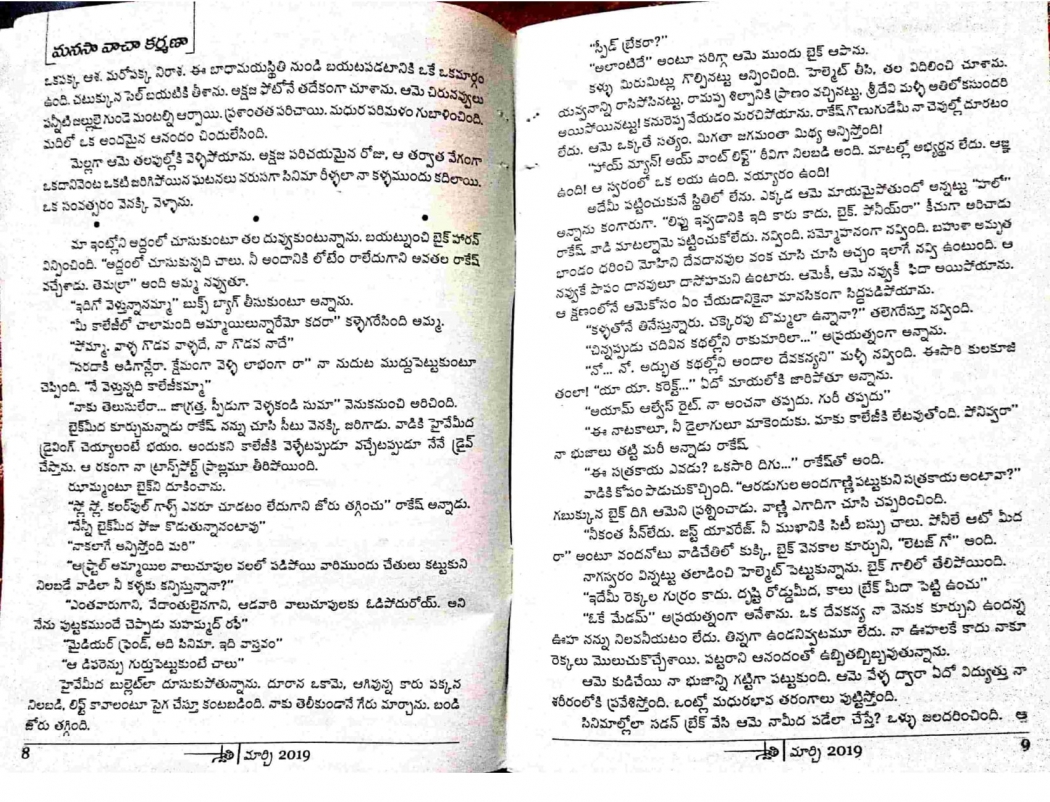 మనసా వాచా కర్మణా
ఒకపక్క ఆశ. మరోపక్క నిరాశ. ఈ బాధామయస్థితి నుండి బయటపడటానికి ఒకే ఒకమార్గం
ఉంది. చటుక్కున సెల్ బయటికి తీశాను. అక్షజ ఫోటోనే తదేకంగా చూశాను. ఆమె చిరునవ్వులు
పన్నీటి జల్లులై గుండె మంటల్ని ఆర్పాయి. ప్రశాంతత పరిచాయి. మధుర పరిమళం గుబాళించింది.
మదిలో ఒక అందమైన ఆనందం చిందులేసింది.
మెల్లగా ఆమె తలపుల్లోకి వెళ్ళిపోయాను. అక్షజ పరిచయమైన రోజు, ఆ తర్వాత వేగంగా
ఒకదానివెంట ఒకటి జరిగిపోయిన ఘటనలు వరుసగా సినిమా రీళ్ళలా నా కళ్ళముందు కదిలాయి.
ఒక సంవత్సరం వెనక్కి వెళ్ళాను.
• • •
మా ఇంట్లోని అద్దంలో చూసుకుంటూ తల దువ్వుకుంటున్నాను. బయట్నుంచి బైక్ హారన్
విన్పించింది. "అద్దంలో చూసుకున్నది చాలు. నీ అందానికి లోటేం రాలేదుగాని అవతల రాకేష్
వచ్చేశాడు. తెమలా" అంది అమ్మ నవ్వుతూ.
"ఇదిగో వెళ్తున్నానమ్మా" బుక్స్ బ్యాగ్ తీసుకుంటూ అన్నాను.
"మీ కాలేజీలో చాలామంది అమ్మాయిలున్నారేమో కదరా" కళ్ళెగరేసింది అమ్మ.
"పోమ్మా. వాళ్ళ గొడవ వాళ్ళదే, నా గొడవ నాదే"
"సరదాకి అడిగాన్లేరా. క్షేమంగా వెళ్ళి లాభంగా రా" నా నుదుట ముద్దుపెట్టుకుంటూ
చెప్పింది. "నే వెళ్తున్నది కాలేజీకమ్మా"
"నాకు తెలుసులేరా... జాగ్రత్త. స్పీడుగా వెళ్ళకండి సుమా" వెనుకనుంచి అరిచింది.
బైక్‌మీద కూర్చునున్నాడు రాకేష్. నన్ను చూసి సీటు వెనక్కి జరిగాడు. వాడికి హైవేమీద
డ్రైవింగ్ చెయ్యాలంటే భయం. అందుకని కాలేజీకి వెళ్ళేటప్పుడూ వచ్చేటప్పుడూ నేనే డ్రైవ్
చేస్తాను. ఆ రకంగా నా ట్రాన్స్‌పోర్ట్ ప్రాబ్లమూ తీరిపోయింది.
ఝామ్మంటూ బైక్‌ని దూకించాను.
"స్లో స్లో. కలర్‌ఫుల్ గాళ్స్ ఎవరూ చూడటం లేదుగాని జోరు తగ్గించు" రాకేష్ అన్నాడు.
"నేన్నీ బైక్‌మీద ఫోజు కొడుతున్నానంటావు"
"నాకలాగే అన్పిస్తోంది మరి"
"ఆఫ్ట్రాల్ అమ్మాయిల వాలుచూపుల వలలో పడిపోయి వారిముందు చేతులు కట్టుకుని
నిలబడే వాడిలా నీ కళ్ళకు కన్పిస్తున్నానా?"
"ఎంతవారుగాని, వేదాంతులైనగాని, ఆడవారి వాలుచూపులకు ఓడిపోదురోయ్. అని
నేను పుట్టకముందే చెప్పాడు మహమ్మద్ రఫీ"
"మైడియర్ ఫ్రెండ్, అది సినిమా. ఇది వాస్తవం"
"ఆ డిఫరెన్సు గుర్తుపెట్టుకుంటే చాలు"
హైవేమీద బుల్లెట్‌లా దూసుకుపోతున్నాను. దూరాన ఒకామె, ఆగివున్న కారు పక్కన
నిలబడి, లిఫ్ట్ కావాలంటూ సైగ చేస్తూ కంటబడింది. నాకు తెలీకుండానే గేరు మార్చాను. బండి
జోరు తగ్గింది.
8 స్వాతి మార్చి 2019
"స్పీడ్ బ్రేకరా?"
"అలాంటిదే" అంటూ సరిగ్గా ఆమె ముందు బైక్ ఆపాను.
కళ్ళు మిరుమిట్లు గొల్పినట్టు అన్పించింది. హెల్మెట్ తీసి, తల విదిలించి చూశాను.
యవ్వనాన్ని రాసిపోసినట్టు, రామప్ప శిల్పానికి ప్రాణం వచ్చినట్టు, శ్రీదేవి మళ్ళీ అతిలోకసుందరి
అయిపోయినట్టు! కనురెప్ప వేయడం మరచిపోయాను. రాకేష్ గొణుగుడేమీ నా చెవుల్లో దూరటం
లేదు. ఆమె ఒక్కతే సత్యం. మిగతా జగమంతా మిథ్య అన్పిస్తోంది!
"హాయ్ మ్యాన్! అయ్ వాంట్ లిఫ్ట్" ఠీవిగా నిలబడి అంది. మాటల్లో అభ్యర్థన లేదు. ఆజ్ఞ
ఉంది! ఆ స్వరంలో ఒక లయ ఉంది. వయ్యారం ఉంది!
అదేమీ పట్టించుకునే స్థితిలో లేను. ఎక్కడ ఆమె మాయమైపోతుందో అన్నట్టు "హలో"
అన్నాను కంగారుగా. "లిఫ్టు ఇవ్వడానికి ఇది కారు కాదు. బైక్. పోనీయ్‌రా" కీచుగా అరిచాడు
రాకేష్. వాడి మాటల్నామె పట్టించుకోలేదు. నవ్వింది. సమ్మోహనంగా నవ్వింది. బహుశా అమృత
భాండం ధరించి మోహిని దేవదానవుల వంక చూసి చూసి అచ్చం ఇలాగే నవ్వి ఉంటుంది. ఆ
నవ్వుకే పాపం దానవులూ దాసోహమని ఉంటారు. ఆమెకీ, ఆమె నవ్వుకీ ఫిదా అయిపోయాను.
ఆ క్షణంలోనే ఆమెకోసం ఏం చేయడానికైనా మానసికంగా సిద్ధపడిపోయాను.
"కళ్ళతోనే తినేస్తున్నారు. చక్కెరపు బొమ్మలా ఉన్నానా?" తలెగరేస్తూ నవ్వింది.
"చిన్నప్పుడు చదివిన కథల్లోని రాకుమారిలా..." అప్రయత్నంగా అన్నాను.
"నో... నో. అద్భుత కథల్లోని అందాల దేవకన్యని" మళ్ళీ నవ్వింది. ఈసారి కులకూజి
తంలా! "యా యా. కరెక్ట్..." ఏదో మాయలోకి జారిపోతూ అన్నాను.
"ఆయామ్ ఆల్వేస్ రైట్. నా అంచనా తప్పదు. గురీ తప్పదు"
"ఈ నాటకాలూ, నీ డైలాగులూ మాకెందుకు. మాకు కాలేజీకి లేటవుతోంది. పోనివ్వరా"
నా భుజాలు తట్టి మరీ అన్నాడు రాకేష్.
"ఈ సత్రకాయ ఎవడు? ఒకసారి దిగు..." రాకేష్‌తో అంది.
వాడికి కోపం పొడుచుకొచ్చింది. "ఆరడుగుల అందగాణ్ణి పట్టుకుని సత్రకాయ అంటావా?"
గబుక్కున బైక్ దిగి ఆమెని ప్రశ్నించాడు. వాణ్ణి ఎగాదిగా చూసి చప్పరించింది.
"నీకంత సీన్‌లేదు. జస్ట్ యావరేజ్. నీ ముఖానికి సిటీ బస్సు చాలు. పోనీలే ఆటో మీద
రా" అంటూ వందనోటు వాడిచేతిలో కుక్కి, బైక్ వెనకాల కూర్చుని, "లెటజ్ గో" అంది.
నాగస్వరం విన్నట్టు తలాడించి హెల్మెట్ పెట్టుకున్నాను. బైక్ గాలిలో తేలిపోయింది.
"ఇదేమీ రెక్కల గుర్రం కాదు. దృష్టి రోడ్డుమీద, కాలు బ్రేక్ మీదా పెట్టి ఉంచు"
"ఓకే మేడమ్" అప్రయత్నంగా అనేశాను. ఒక దేవకన్య నా వెనుక కూర్చుని ఉందన్న
ఊహ నన్ను నిలవనీయటం లేదు. తిన్నగా ఉండనివ్వటమూ లేదు. నా ఊహలకే కాదు నాకూ
రెక్కలు మొలుచుకొచ్చేశాయి. పట్టరాని ఆనందంతో ఉబ్బితబ్బిబ్బవుతున్నాను.
ఆమె కుడిచేయి నా భుజాన్ని గట్టిగా పట్టుకుంది. ఆమె వేళ్ళ ద్వారా ఏదో విద్యుత్తు నా
శరీరంలోకి ప్రవేశిస్తోంది. ఒంట్లో మధురభావ తరంగాలు పుట్టిస్తోంది.
సినిమాల్లోలా సడన్ బ్రేక్ వేసి ఆమె నామీద పడేలా చేస్తే? ఒళ్ళు జలదరించింది. ఆ
స్వాతి మార్చి 2019 9